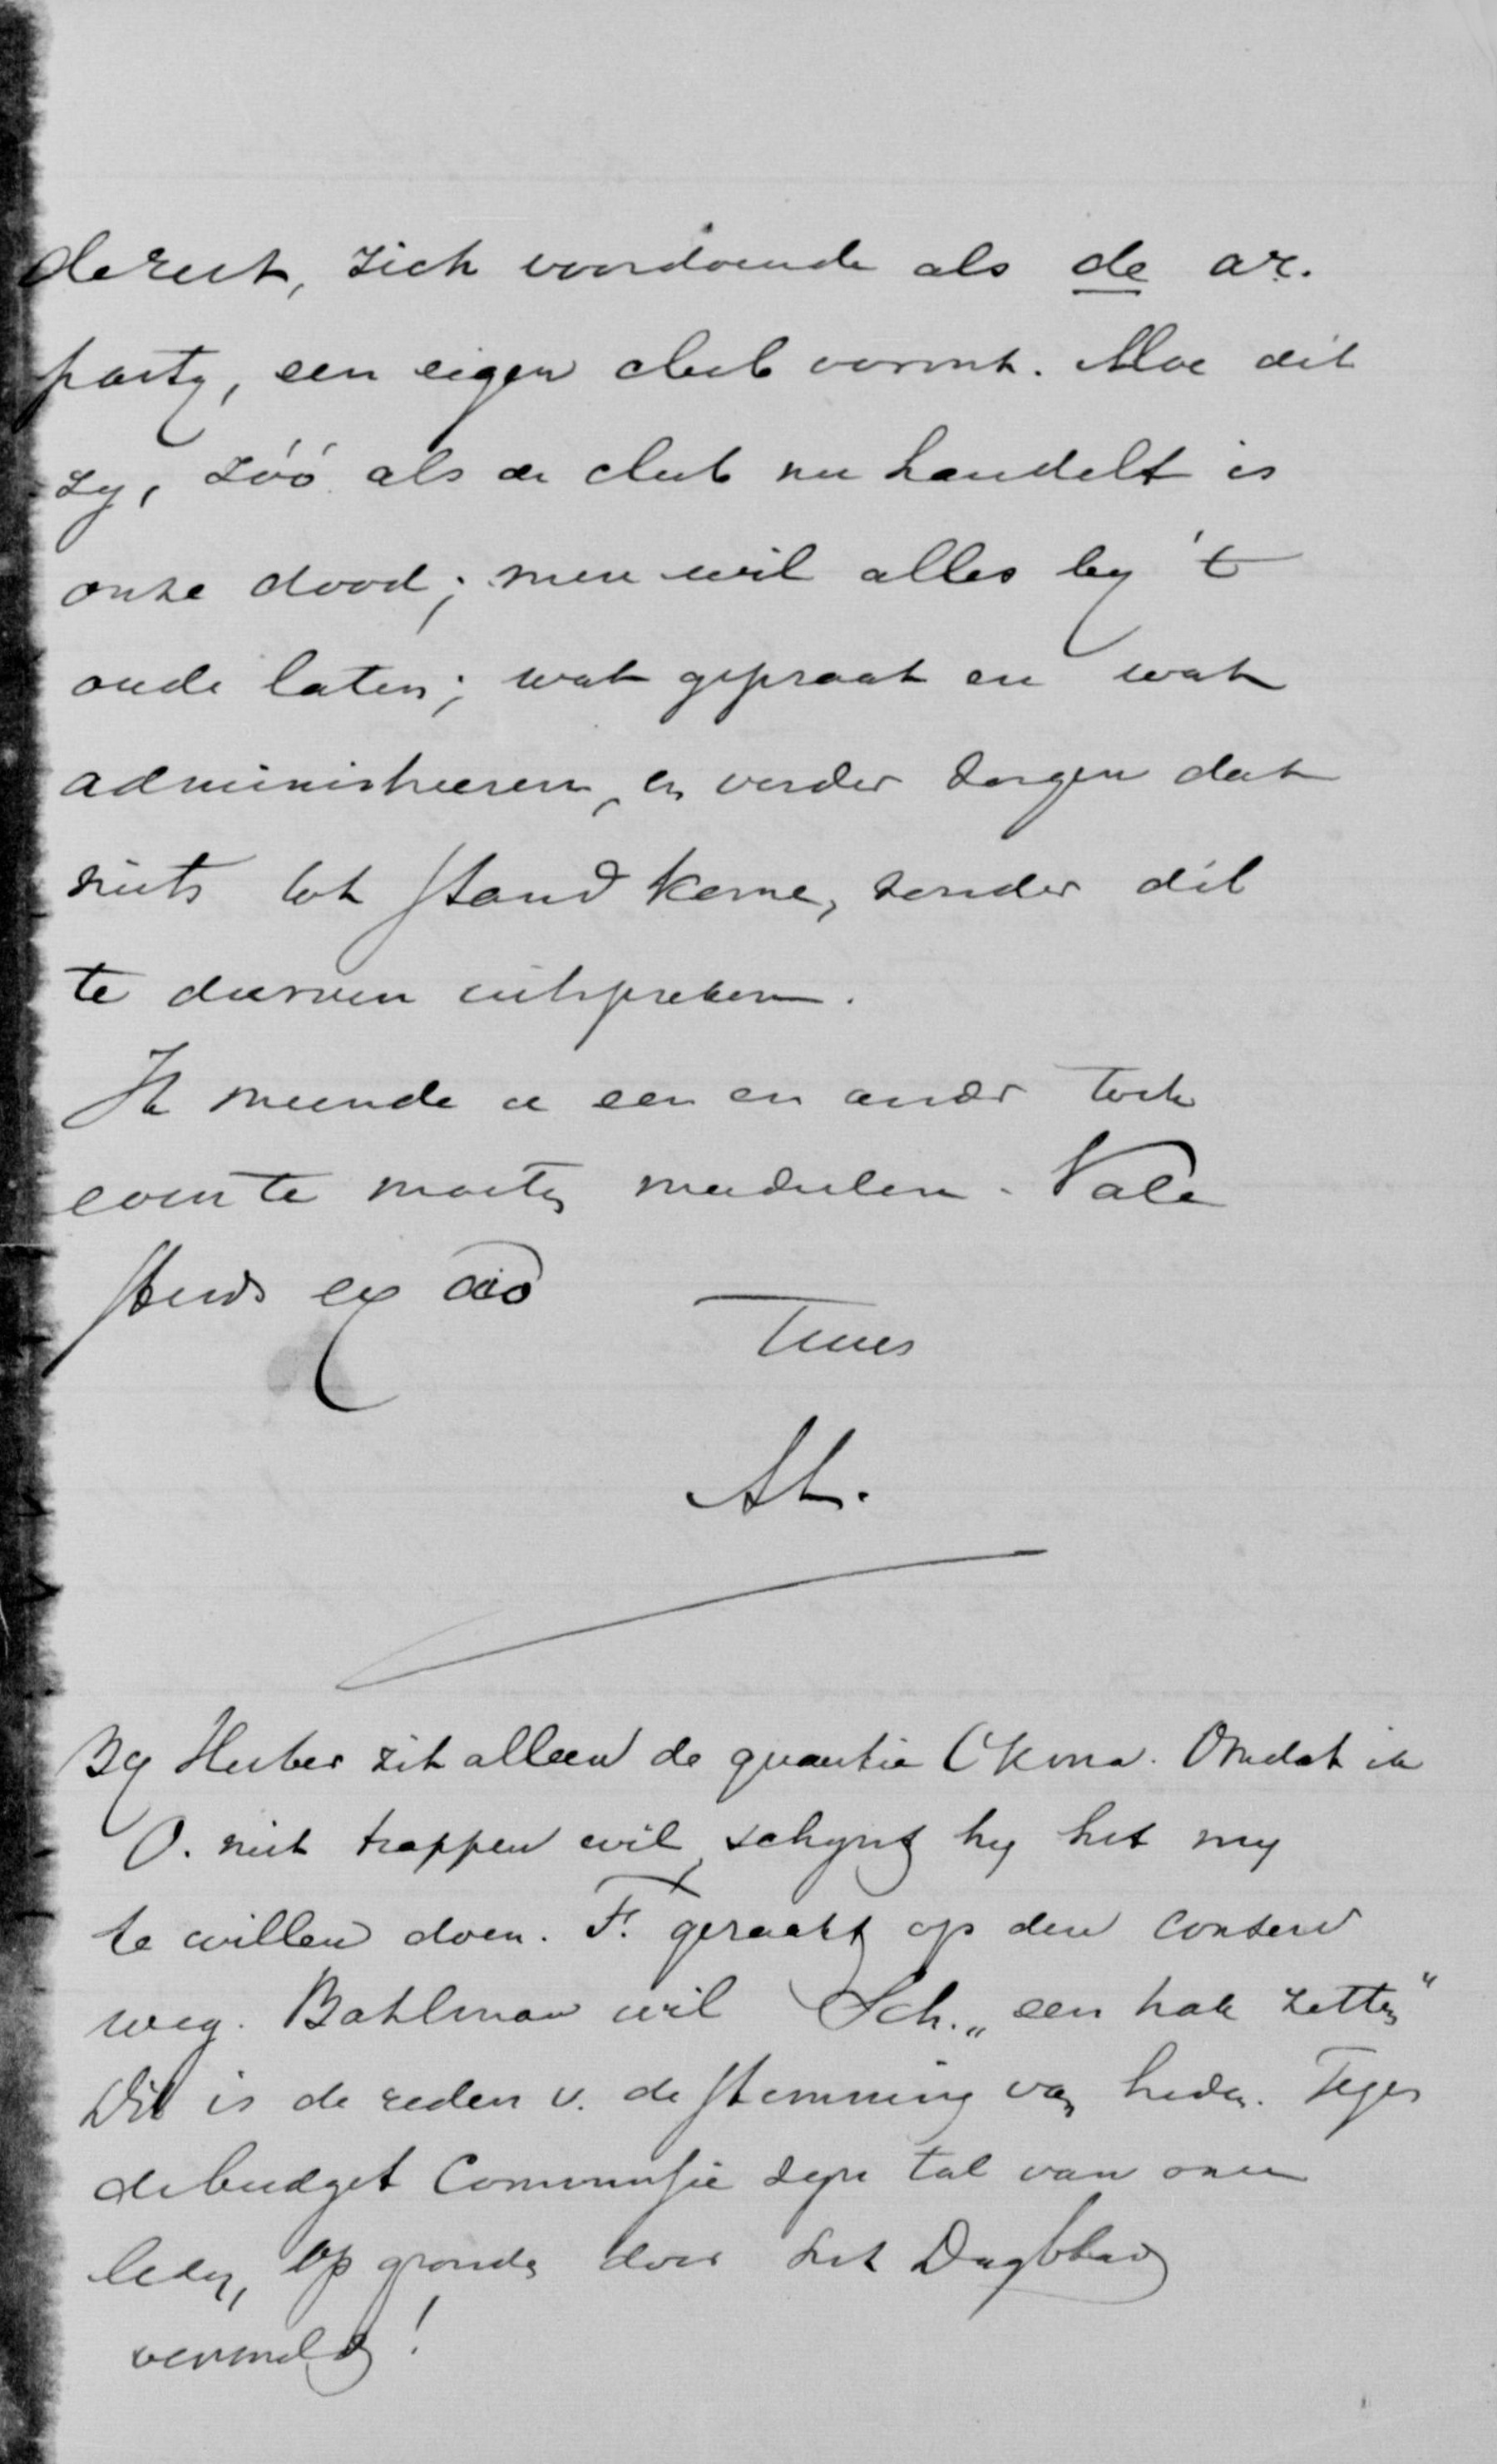 de rest, zich voordoende als de ar.
party, een eigen club vormt. Hoe dit
zy, zóó als de club nu handelt is
onze dood; men wil alles by 't
oude laten; wat gepraat en wat
administreeren, en verder zorgen dat
niets tot stand kome, zonder dit
te durven uitspreken.
Ik meende u een en ander toch
even te moeten mededeelen. Vale
steeds ex aio
Tuus
AL.
By Huber zit alleen de quaestie Okma. Omdat ik
O. niet trappen wil, schynt hy het my
te willen doen. F. geraakt op den conserv
weg. Bahlman wil Sch. „een hak zetten"
Dit is de reden v. de stemming van heden. Tegen
de budget Commissie zyn tal van onze
leden, op gronden door het Dagblad
vermeld!